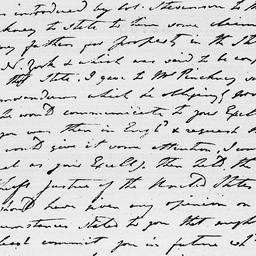 introduced by Col. Stevenson to M
to State to him some claim
my father for property in the Sta
N. York & which was said to be con
that State. I gave to Mr Pinckney
memorandum which he obligingly
he would communicate to your Excel
you was then in Engld & request
would give it some attention, I
as your Excely. then held the
Chief Justice of the United States
should have given any opinion on
circumstances stated to you that might
least commit you in future wh